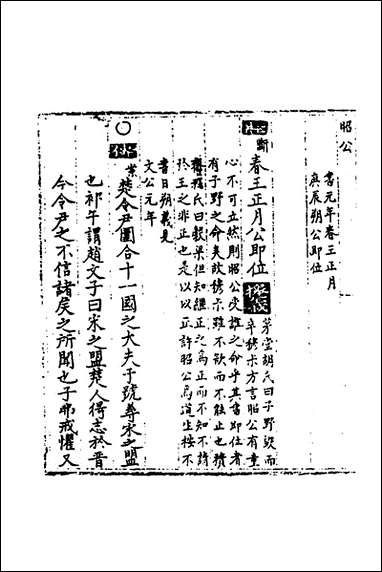 昭公
書元年春王正月
庚辰朔公即位
斷
春王正月公即位
茅堂胡氏曰子野設而
卒穆叔方言昭公有童
心不可立然則昭公受誰之命乎其書即位者
有子野之命矣故穆叔雖不欲而不能止也積
齋程氏曰穀梁但知繼正之為正而不知不請
於王之非正也是以以正許昭公為道生按不
書日朔義見
文公元年
案楚令尹圍合十一國之大夫于虢尋宋之盟
也祁午謂趙文子曰宋之盟楚人得志於晉
今令尹之不信諸侯之所聞也子弗戒懼又